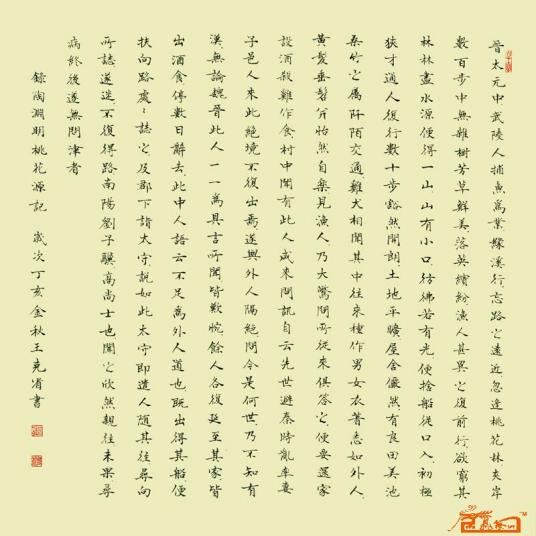 晉太元中武陵人捕魚爲業緣溪行忘路之遠近忽逢桃花林夾岸
數百步中無雜樹芳草鮮美落英繽紛漁人甚異之復前行欲窮其
林林盡水源便得一山山有小口彷彿若有光便捨船從口入初極
狹才通人復行數十步豁然開朗土地平曠屋舍儼然有良田美池
桑竹之屬阡陌交通雞犬相聞其中往來種作男女衣著悉如外人
黃髮垂髫並怡然自樂見漁人乃大驚問所從來俱答之便要還家
設酒殺雞作食村中聞有此人咸來問訊自云先世避秦時亂率妻
子邑人來此絕境不復出焉遂與外人隔絕問今是何世乃不知有
漢無論魏晉此人一一爲具言所聞皆歎惋餘人各復延至其家皆
出酒食停數日辭去此中人語云不足爲外人道也既出得其船便
扶向路處々誌之及郡下詣太守說如此太守即遣人隨其往尋向
所誌遂迷不復得路南陽劉子驥高尚士也聞之欣然親往未果尋
病終後遂無問津者
錄陶淵明桃花源記 歲次丁亥金秋王克省書